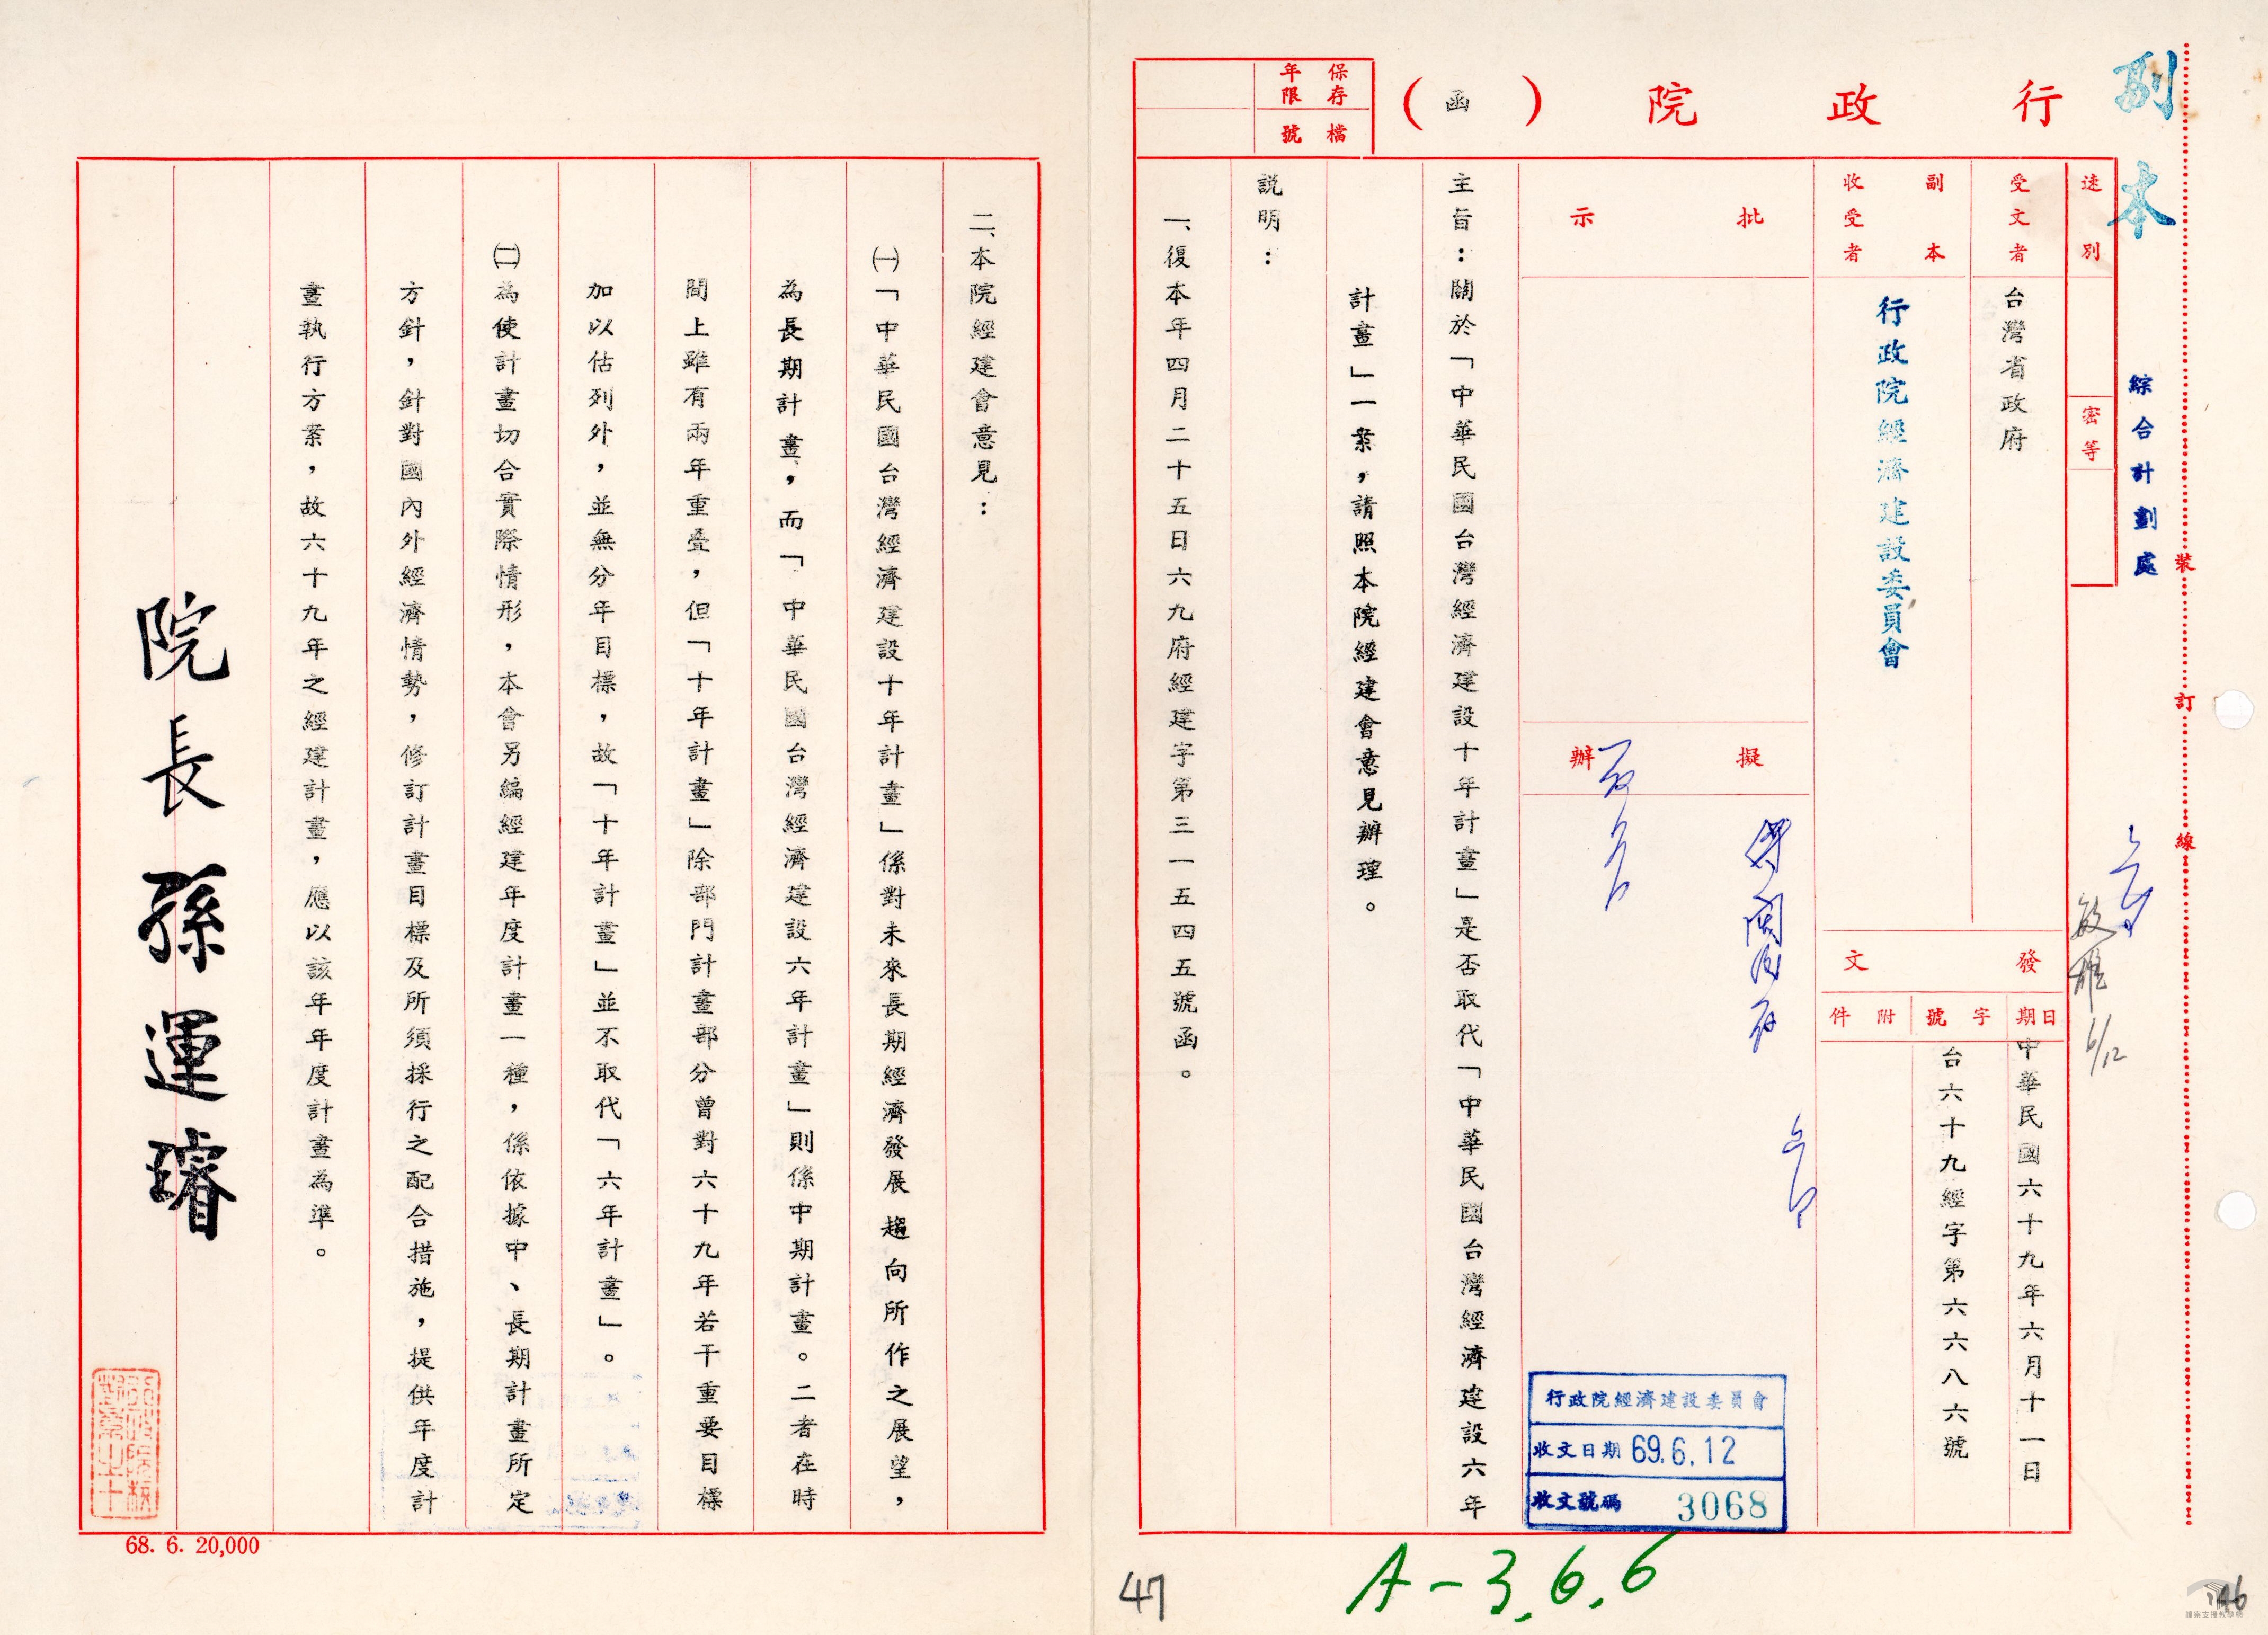 副本
行政院（函）
保存年限
檔號
綜合計劃處
裝訂線
速別
密等
受文者
台灣省政府
副本收受者
行政院經濟建設委員會
發文
日期
中華民國六十九年六月十一日
字號
台六十九經字第六六八六號
附件
批示
擬辦
6/12
行政院經濟建設委員會
收文日期 69.6.12
收文號碼 3068
主旨：關於「中華民國台灣經濟建設十年計畫」是否取代「中華民國台灣經濟建設六年
計畫」一案，請照本院經建會意見辦理。
說明：
一、復本年四月二十五日六九府經建字第三一五四五號函。
二、本院經建會意見：
㈠「中華民國台灣經濟建設十年計畫」係對未來長期經濟發展趨向所作之展望，
為長期計畫，而「中華民國台灣經濟建設六年計畫」則係中期計畫。二者在時
間上雖有兩年重疊，但「十年計畫」除部門計畫部分曾對六十九年若干重要目標
加以估列外，並無分年目標，故「十年計畫」並不取代「六年計畫」。
㈡為使計畫切合實際情形，本會另編經建年度計畫一種，係依據中、長期計畫所定
方針，針對國內外經濟情勢，修訂計畫目標及所須採行之配合措施，提供年度計
畫執行方案，故六十九年之經建計畫，應以該年年度計畫為準。
院長孫運璿
68. 6. 20,000
47
A-3.6.6
46
檔案支援教學網